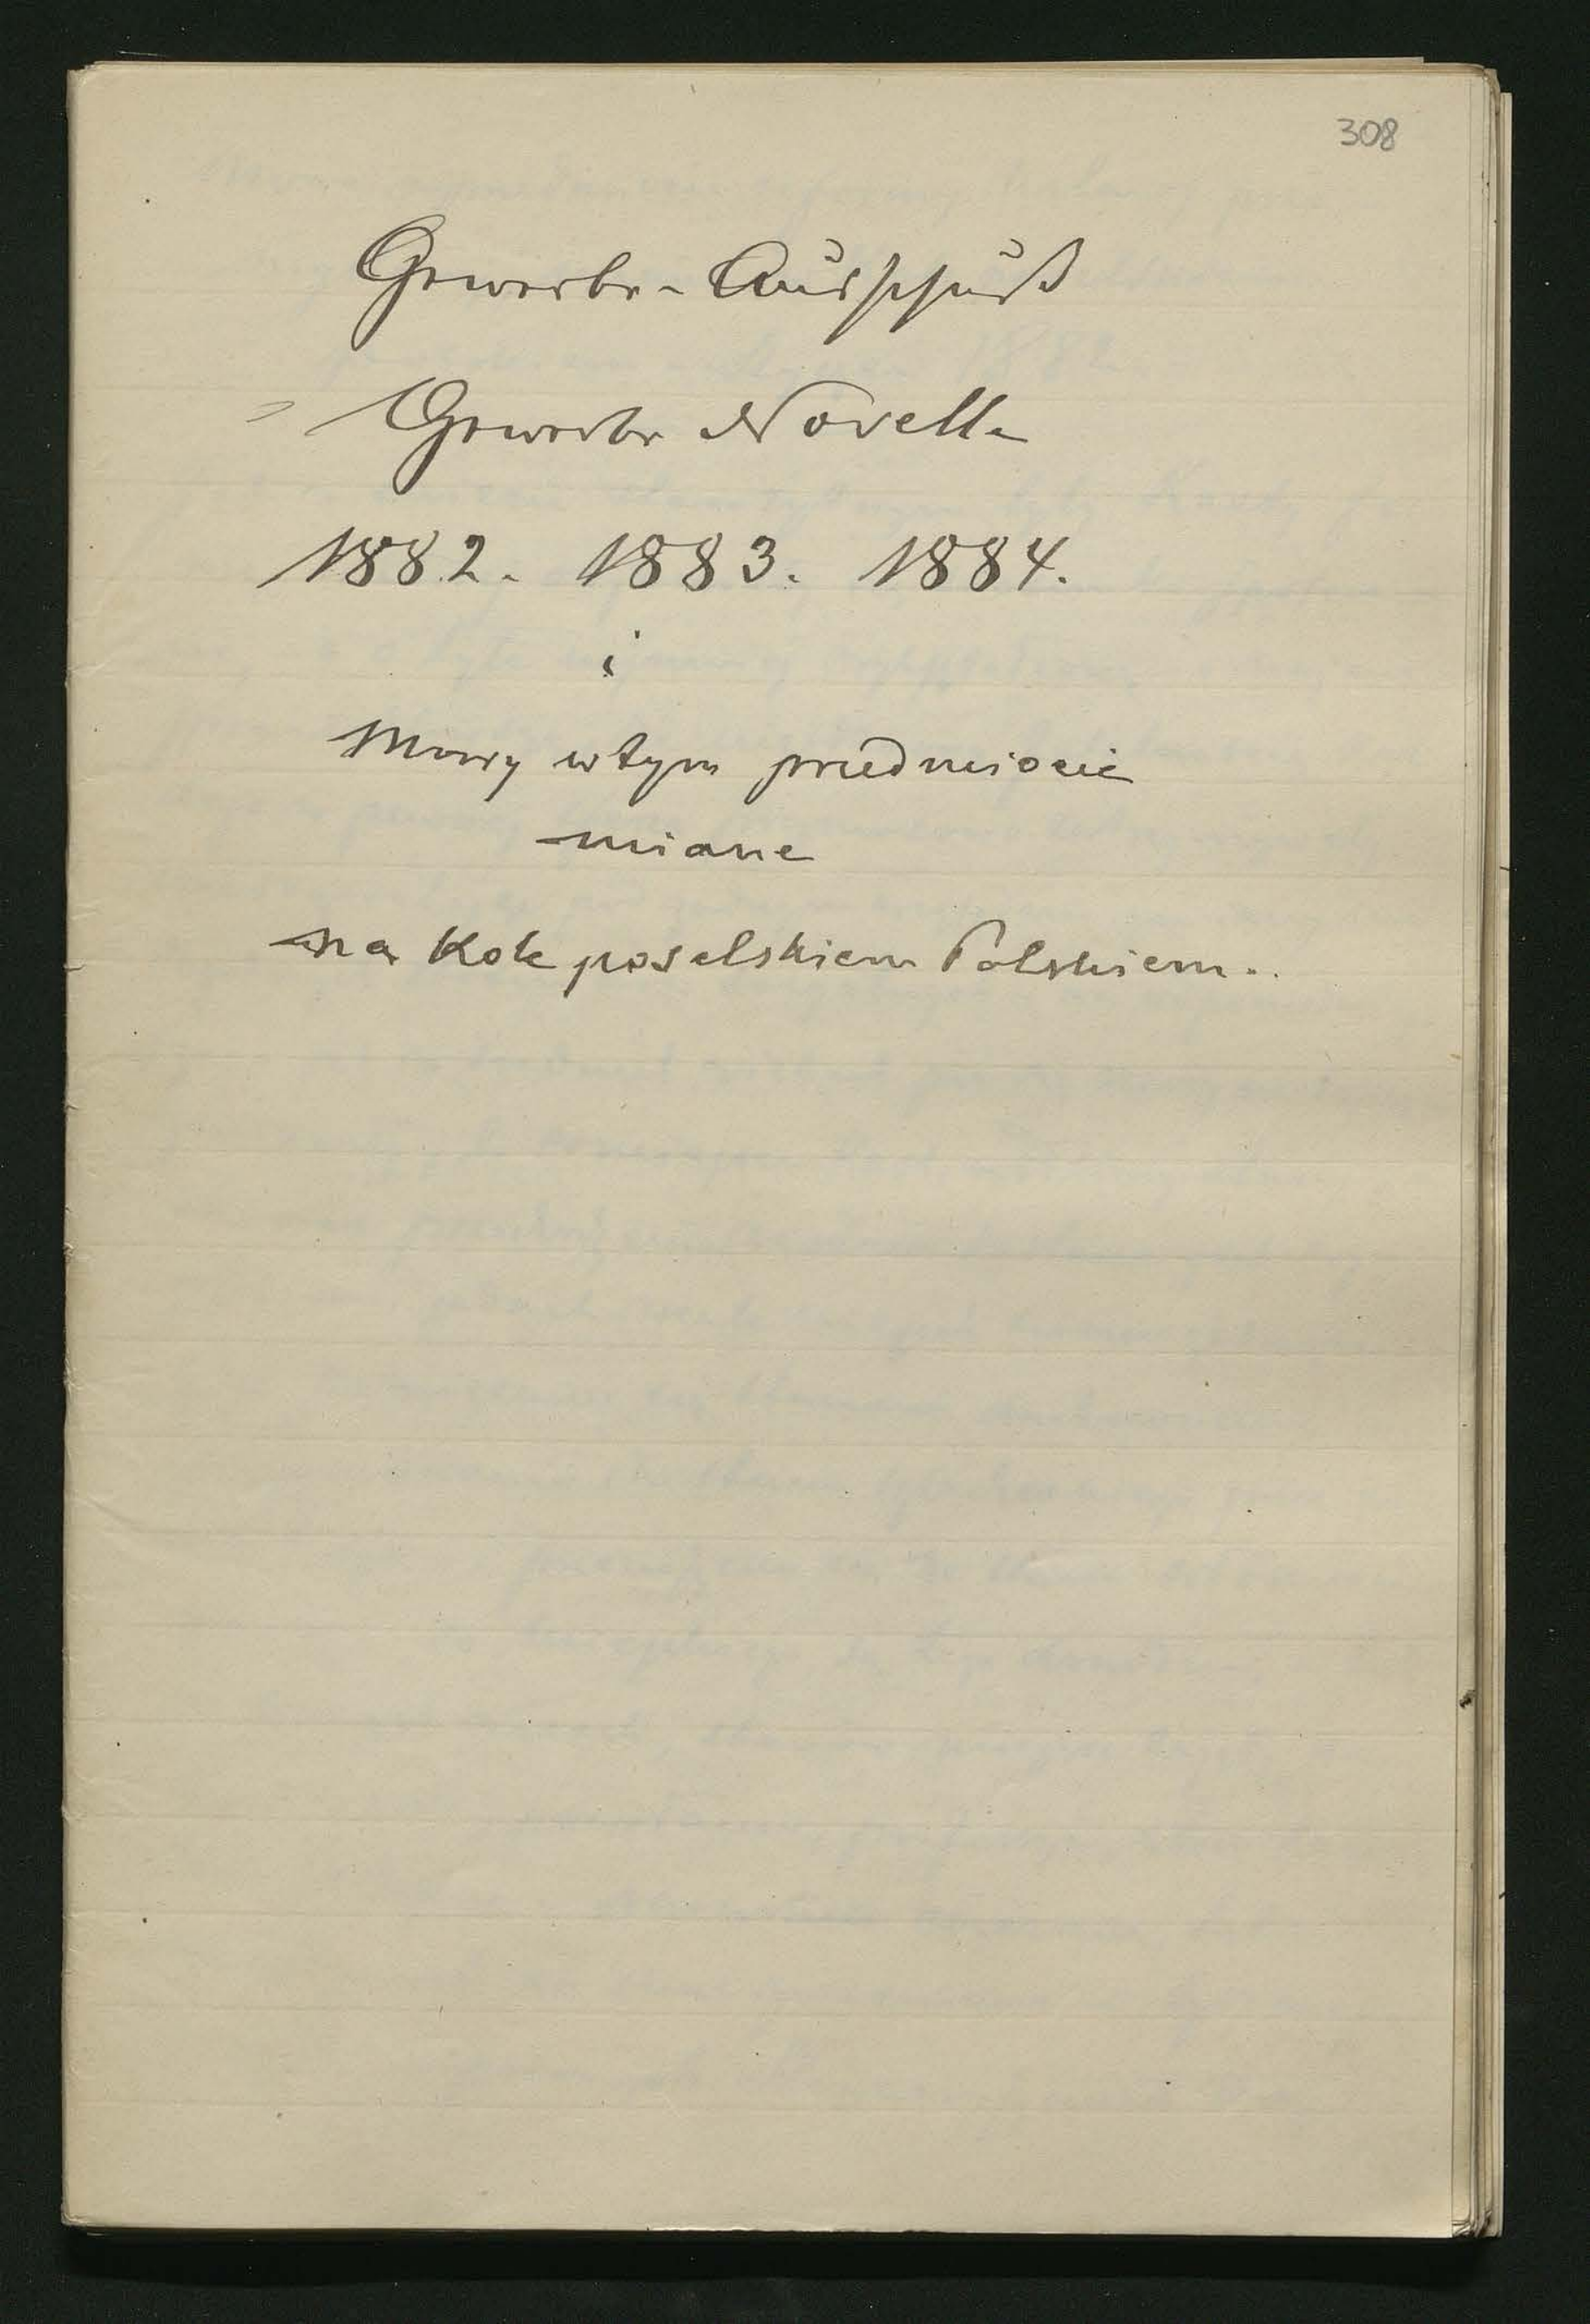 308
Gewerbe-Ausschuß
Gewerbe Novelle
1882. 1883. 1884.
i
Mowy w tym przedmiocie
miane
na Kole poselskiem Polskiem.